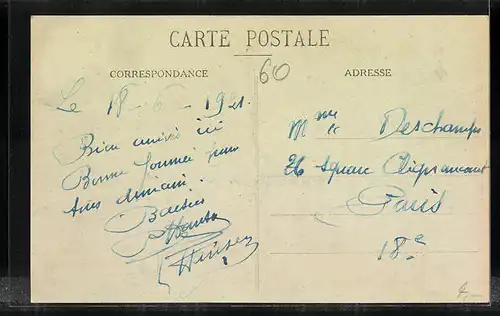 CARTE POSTALE
CORRESPONDANCE
60
ADRESSE
Le 18-6-1921.
Bien arrivé ici
Bonne journée pour
demain.
Baisers
Mme Deschamps
26 square Clignancourt
Paris
18e